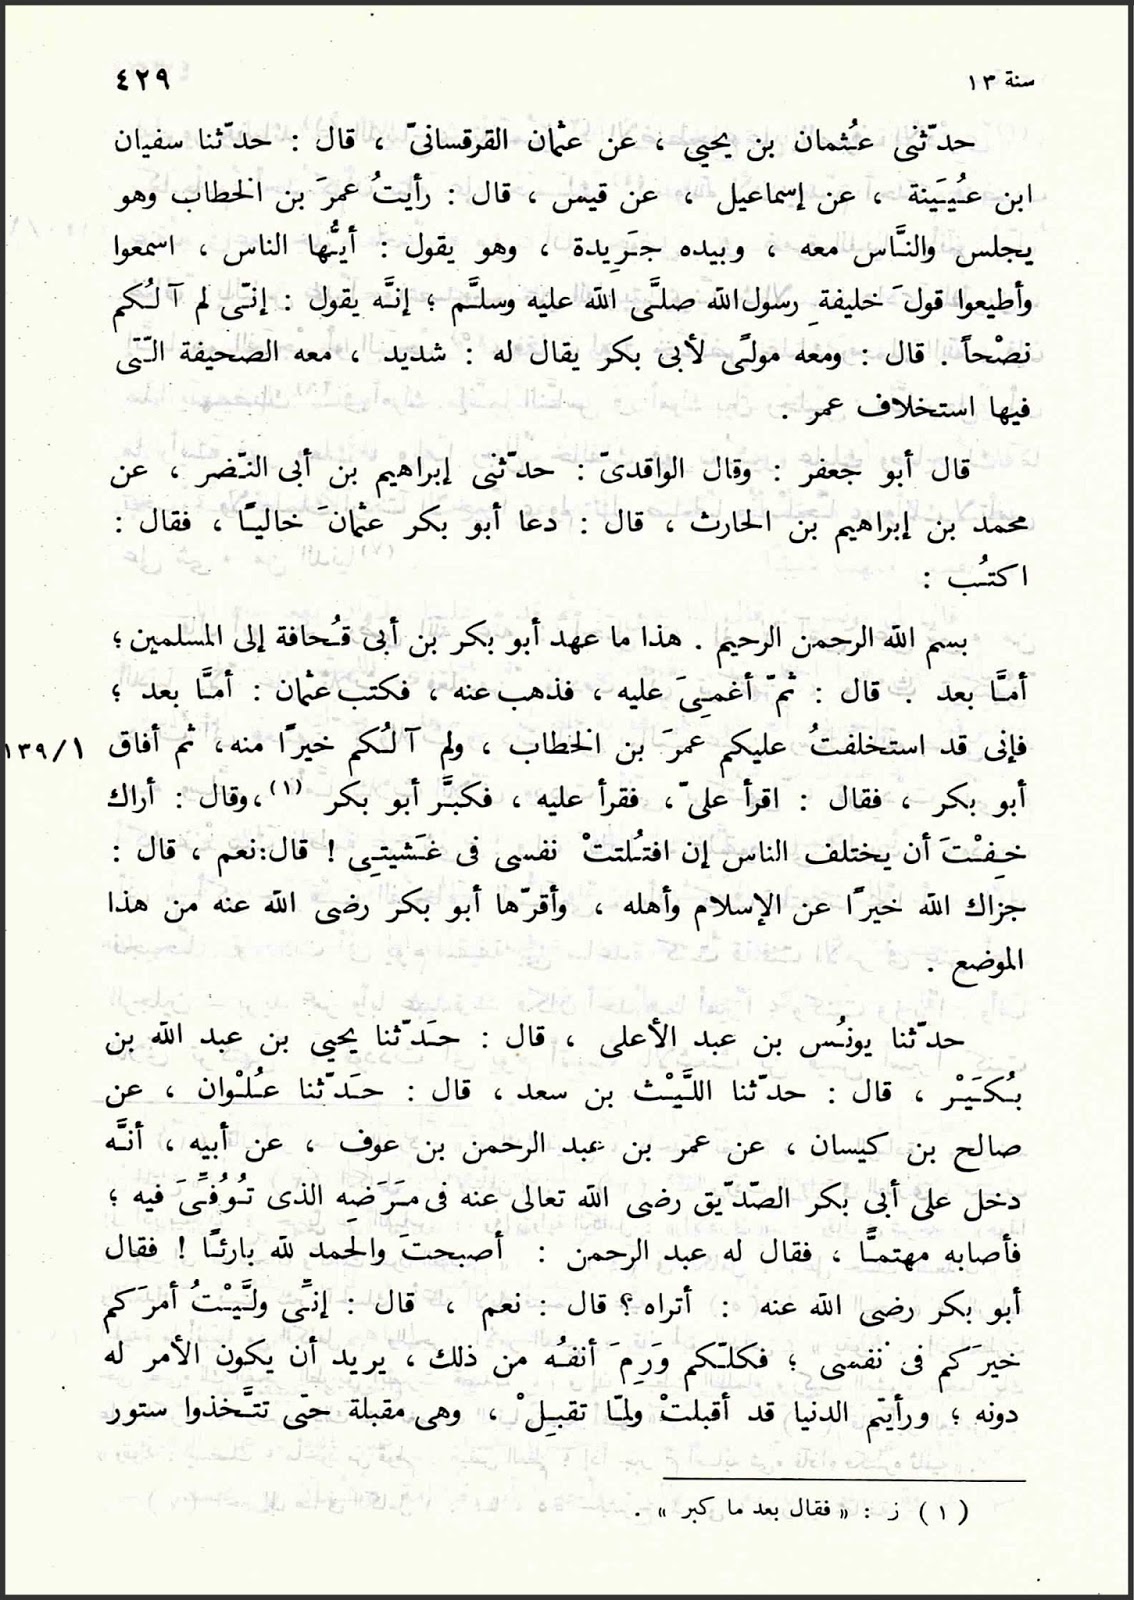 سنة ١٣
٤٢٩
حدّثنى عُثمان بن يحيى ، عن عثمان القرقسانىّ ، قال : حدّثنا سفيان
ابن عُيَينة ، عن إسماعيل ، عن قيس ، قال : رأيتُ عمرَ بن الخطاب وهو
يجلس والنَّاس معه ، وبيده جَرِيدة ، وهو يقول : أيُّها الناس ، اسمعوا
وأطيعوا قولَ خليفةِ رسول الله صلَّى الله عليه وسلَّم ؛ إنَّه يقول : إنّى لم آلُكم
نصْحاً . قال : ومعه مولًى لأبى بكر يقال له : شديد ، معه الصحيفة الّتى
فيها استخلاف عمر .
قال أبو جعفر : وقال الواقدىّ : حدّثنى إبراهيم بن أبى النّضر ، عن
محمد بن إبراهيم بن الحارث ، قال : دعا أبو بكر عثمانَ خاليًا ، فقال :
اكتُب :
بسم الله الرحمن الرحيم . هذا ما عهد أبو بكر بن أبى قُحافة إلى المسلمين ؛
أمَّا بعد . قال : ثمّ أغمِىَ عليه ، فذهب عنه ، فكتب عثمان : أمَّا بعد ؛
فإنى قد استخلفتُ عليكم عمرَ بن الخطاب ، ولم آلُكم خيرًا منه، ثم أفاق ١٣٩/١
أبو بكر ، فقال : اقرأ علىّ ، فقرأ عليه ، فكبَّر أبو بكر (١)،وقال : أراك
خِفْتَ أن يختلف الناس إن افتُلتتْ نفسى فى غَشيتِى ! قال:نعم ، قال :
جزاك الله خيرًا عن الإسلام وأهله ، وأقرّها أبو بكر رضى الله عنه من هذا
الموضع .
حدّثنا يونُس بن عبد الأعلى ، قال : حَدّثنا يحيى بن عبد الله بن
بُكَيْر ، قال : حدّثنا اللَّيْث بن سعد ، قال : حَدّثنا عُلْوان ، عن
صالح بن كيسان ، عن عمر بن عبد الرحمن بن عوف ، عن أبيه ، أنَّه
دخل على أبى بكر الصّدّيق رضى الله تعالى عنه فى مَرَضِه الذى تُوُفِّىَ فيه ؛
فأصابه مهتمًّا ، فقال له عبد الرحمن : أصبحتَ والحمد لله بارئًا ! فقال
أبو بكر رضى الله عنه : أتراه ؟ قال : نعم ، قال : إنِّى ولَّيْتُ أمرَكم
خيرَكم فى نفسى ؛ فكلّكم وَرِمَ أنفُه من ذلك ، يريد أن يكون الأمر له
دونه ؛ ورأيتم الدنيا قد أقبلتْ ولمّا تقبِلْ ، وهى مقبلة حتّى تتَّخذوا ستور
(١) ز : « فقال بعد ما كبر » .